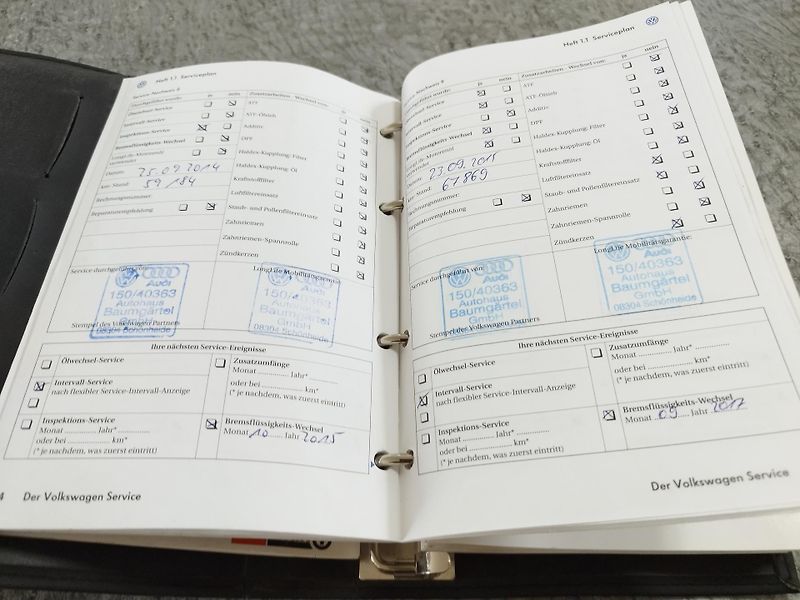 Heft 1.1 Serviceplan
Service-Nachweis 8
Durchgeführt wurde:
ja
nein
Zusatzarbeiten - Wechsel von:
ja
Ölwechsel-Service
Intervall-Service
Inspektions-Service
Bremsflüssigkeits-Wechsel
LongLife-Motorenöl
verwendet
Datum:
25.09.2014
km-Stand:
59184
Rechnungsnummer:
Reparaturempfehlung
ATF
ATF-Ölsieb
Additiv
DPF
Haldex-Kupplung: Filter
Haldex-Kupplung: Öl
Kraftstofffilter
Luftfiltereinsatz
Staub- und Pollenfiltereinsatz
Zahnriemen
Zahnriemen-Spannrolle
Zündkerzen
Service durchgeführt
LongLife Mobilitätsgarantie
Audi
150/40363
Autohaus
Baumgärtel
GmbH
08304 Schönheide
Audi
150/40363
Autohaus
Baumgärtel
GmbH
08304 Schönheide
Stempel des Volkswagen Partners
Ihre nächsten Service-Ereignisse
Ölwechsel-Service
Intervall-Service
nach flexibler Service-Intervall-Anzeige
Inspektions-Service
Monat ............ Jahr* ............
oder bei .................... km*
(* je nachdem, was zuerst eintritt)
Zusatzumfänge
Monat ............ Jahr* ............
oder bei .................... km*
(* je nachdem, was zuerst eintritt)
Bremsflüssigkeits-Wechsel
Monat 10 Jahr 2015
4 Der Volkswagen Service
Heft 1.1 Serviceplan
ja
nein
Zusatzarbeiten - Wechsel von:
ja
nein
Inspektions-Service
Bremsflüssigkeits-Wechsel
LongLife-Motorenöl
Datum:
23.09.2015
km-Stand:
67869
Rechnungsnummer:
Reparaturempfehlung
ATF
ATF-Ölsieb
Additiv
DPF
Haldex-Kupplung: Filter
Haldex-Kupplung: Öl
Kraftstofffilter
Luftfiltereinsatz
Staub- und Pollenfiltereinsatz
Zahnriemen
Zahnriemen-Spannrolle
Zündkerzen
Service durchgeführt von:
LongLife Mobilitätsgarantie:
Audi
150/40363
Autohaus
Baumgärtel
GmbH
08304 Schönheide
Audi
150/40363
Autohaus
Baumgärtel
GmbH
08304 Schönheide
Stempel des Volkswagen Partners
Ihre nächsten Service-Ereignisse
Ölwechsel-Service
Intervall-Service
nach flexibler Service-Intervall-Anzeige
Inspektions-Service
Monat ............ Jahr* ............
oder bei .................... km*
(* je nachdem, was zuerst eintritt)
Zusatzumfänge
Monat ............ Jahr* ............
oder bei .................... km*
(* je nachdem, was zuerst eintritt)
Bremsflüssigkeits-Wechsel
Monat 09 Jahr 2017
Der Volkswagen Service